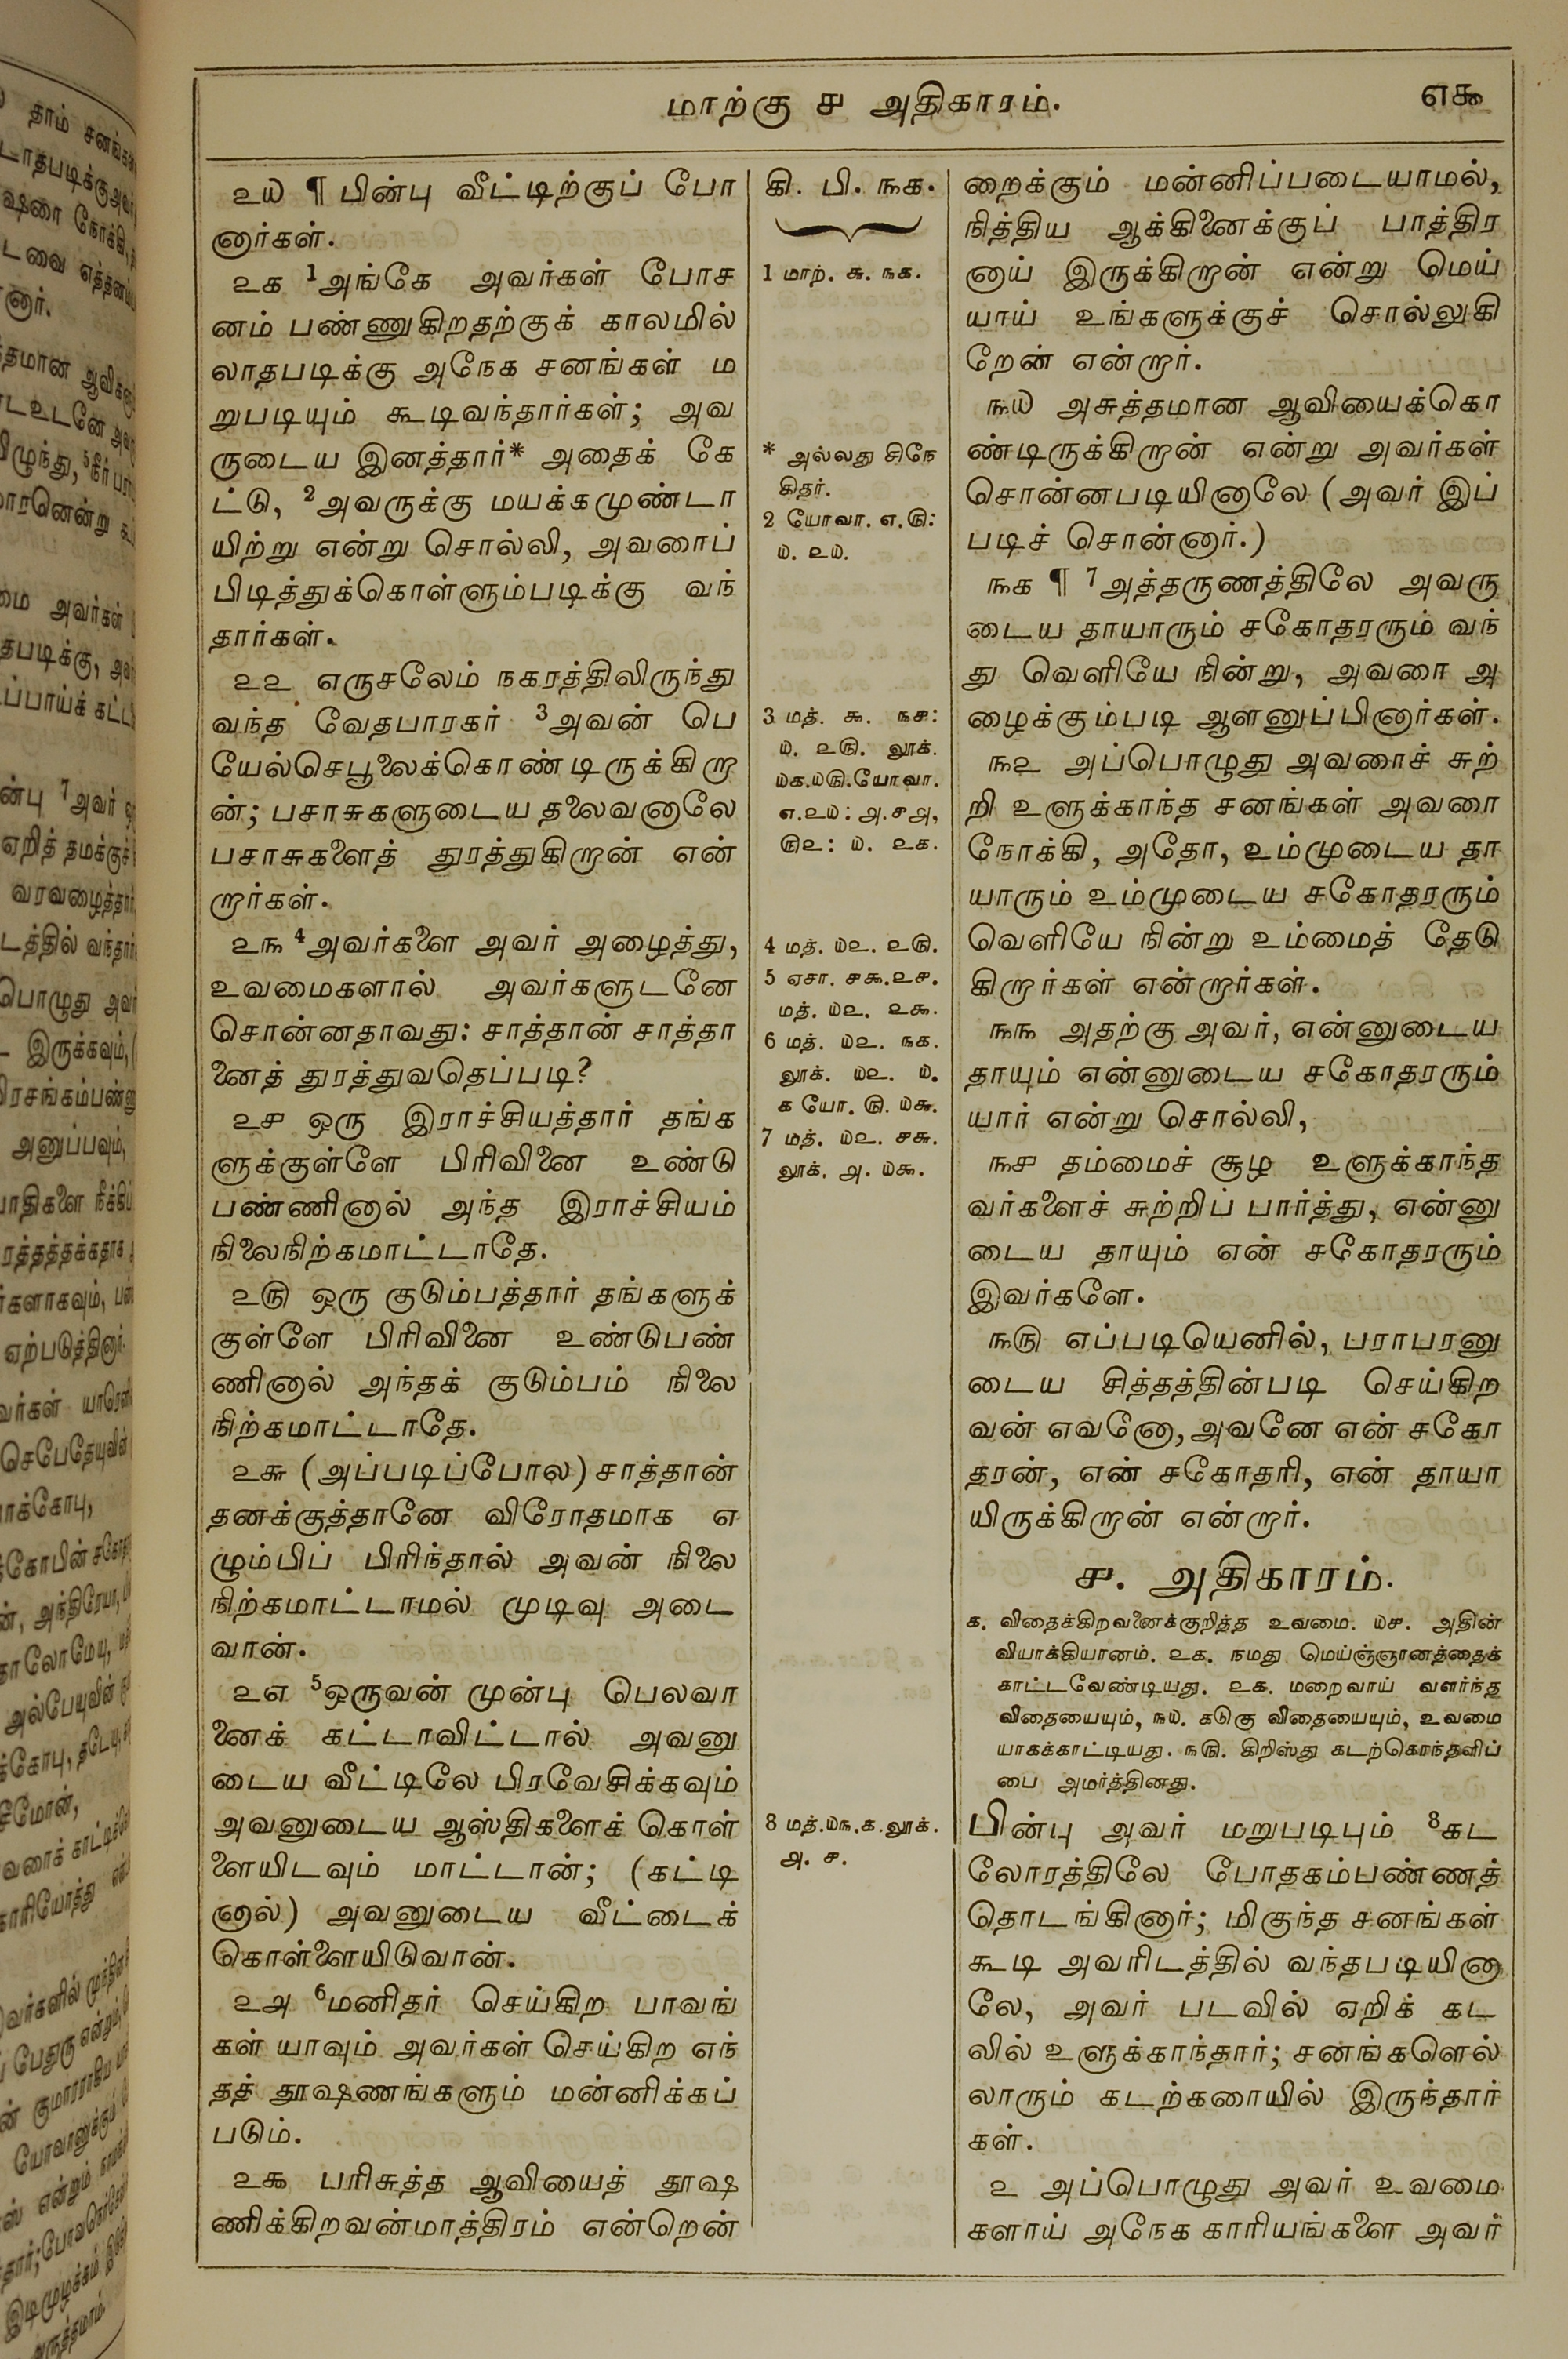 மாற்கு ௪ அதிகாரம்.
௭௯
௨௰ ¶ பின்பு வீட்டிற்குப் போ
னார்கள்.
௨௧ 1அங்கே அவர்கள் போச
னம் பண்ணுகிறதற்குக் காலமில்
லாதபடிக்கு அநேக சனங்கள் ம
றுபடியும் கூடிவந்தார்கள்; அவ
ருடைய இனத்தார்* அதைக் கே
ட்டு, 2அவருக்கு மயக்கமுண்டா
யிற்று என்று சொல்லி, அவரைப்
பிடித்துக்கொள்ளும்படிக்கு வந்
தார்கள்.
௨௨ எருசலேம் நகரத்திலிருந்து
வந்த வேதபாரகர் 3அவன் பெ
யேல்செபூலைக்கொண்டிருக்கிறா
ன்; பசாசுகளுடைய தலைவனாலே
பசாசுகளைத் துரத்துகிறான் என்
றார்கள்.
௨௩ 4அவர்களை அவர் அழைத்து,
உவமைகளால் அவர்களுடனே
சொன்னதாவது: சாத்தான் சாத்தா
னைத் துரத்துவதெப்படி?
௨௪ ஒரு இராச்சியத்தார் தங்க
ளுக்குள்ளே பிரிவினை உண்டு
பண்ணினால் அந்த இராச்சியம்
நிலைநிற்கமாட்டாதே.
௨௫ ஒரு குடும்பத்தார் தங்களுக்
குள்ளே பிரிவினை உண்டுபண்
ணினால் அந்தக் குடும்பம் நிலை
நிற்கமாட்டாதே.
௨௬ (அப்படிப்போல) சாத்தான்
தனக்குத்தானே விரோதமாக எ
ழும்பிப் பிரிந்தால் அவன் நிலை
நிற்கமாட்டாமல் முடிவு அடை
வான்.
௨௭ 5ஒருவன் முன்பு பெலவா
னைக் கட்டாவிட்டால் அவனு
டைய வீட்டிலே பிரவேசிக்கவும்
அவனுடைய ஆஸ்திகளைக் கொள்
ளையிடவும் மாட்டான்; (கட்டி
னால்) அவனுடைய வீட்டைக்
கொள்ளையிடுவான்.
௨௮ 6மனிதர் செய்கிற பாவங்
கள் யாவும் அவர்கள் செய்கிற எந்
தத் தூஷணங்களும் மன்னிக்கப்
படும்.
௨௯ பரிசுத்த ஆவியைத் தூஷ
ணிக்கிறவன்மாத்திரம் என்றென்
கி. பி. ௩௧.
1 மாற். ௬. ௩௧.
* அல்லது சிநே
கிதர்.
2 யோவா. ௭.௫:
௰. ௨௰.
3 மத். ௯. ௩௪:
௰. ௨௫. லூக்.
௰௧.௰௫.யோவா.
௭.௨௰: ௮.௪௮,
௫௨: ௰. ௨௧.
4 மத். ௰௨. ௨௫.
5 ஏசா. ௪௯.௨௪.
மத். ௰௨. ௨௯.
6 மத். ௰௨. ௩௧.
லூக். ௰௨. ௰.
௧ யோ. ௫. ௰௬.
7 மத். ௰௨. ௪௬.
லூக். ௮. ௰௯.
8 மத்.௰௩.௧.லூக்.
௮. ௪.
றைக்கும் மன்னிப்படையாமல்,
நித்திய ஆக்கினைக்குப் பாத்திர
னாய் இருக்கிறான் என்று மெய்
யாய் உங்களுக்குச் சொல்லுகி
றேன் என்றார்.
௩௰ அசுத்தமான ஆவியைக்கொ
ண்டிருக்கிறான் என்று அவர்கள்
சொன்னபடியினாலே (அவர் இப்
படிச் சொன்னார்.)
௩௧ ¶ 7அத்தருணத்திலே அவரு
டைய தாயாரும் சகோதரரும் வந்
து வெளியே நின்று, அவரை அ
ழைக்கும்படி ஆளனுப்பினார்கள்.
௩௨ அப்பொழுது அவரைச் சுற்
றி உளுக்காந்த சனங்கள் அவரை
நோக்கி, அதோ, உம்முடைய தா
யாரும் உம்முடைய சகோதரரும்
வெளியே நின்று உம்மைத் தேடு
கிறார்கள் என்றார்கள்.
௩௩ அதற்கு அவர், என்னுடைய
தாயும் என்னுடைய சகோதரரும்
யார் என்று சொல்லி,
௩௪ தம்மைச் சூழ உளுக்காந்த
வர்களைச் சுற்றிப் பார்த்து, என்னு
டைய தாயும் என் சகோதரரும்
இவர்களே.
௩௫ எப்படியெனில், பராபரனு
டைய சித்தத்தின்படி செய்கிற
வன் எவனோ, அவனே என் சகோ
தரன், என் சகோதரி, என் தாயா
யிருக்கிறான் என்றார்.
௪. அதிகாரம்.
௧. விதைக்கிறவனைக்குறித்த உவமை. ௰௪. அதின்
வியாக்கியானம். ௨௧. நமது மெய்ஞ்ஞானத்தைக்
காட்டவேண்டியது. ௨௬. மறைவாய் வளர்ந்த
விதையையும், ௩௰. கடுகு விதையையும், உவமை
யாகக்காட்டியது. ௩௫. கிறிஸ்து கடற்கொந்தளிப்
பை அமர்த்தினது.
பின்பு அவர் மறுபடிபும் 8கட
லோரத்திலே போதகம்பண்ணத்
தொடங்கினார்; மிகுந்த சனங்கள்
கூடி அவரிடத்தில் வந்தபடியினா
லே, அவர் படவில் ஏறிக் கட
லில் உளுக்காந்தார்; சனங்களெல்
லாரும் கடற்கரையில் இருந்தார்
கள்.
௨ அப்பொழுது அவர் உவமை
களாய் அநேக காரியங்களை அவர்